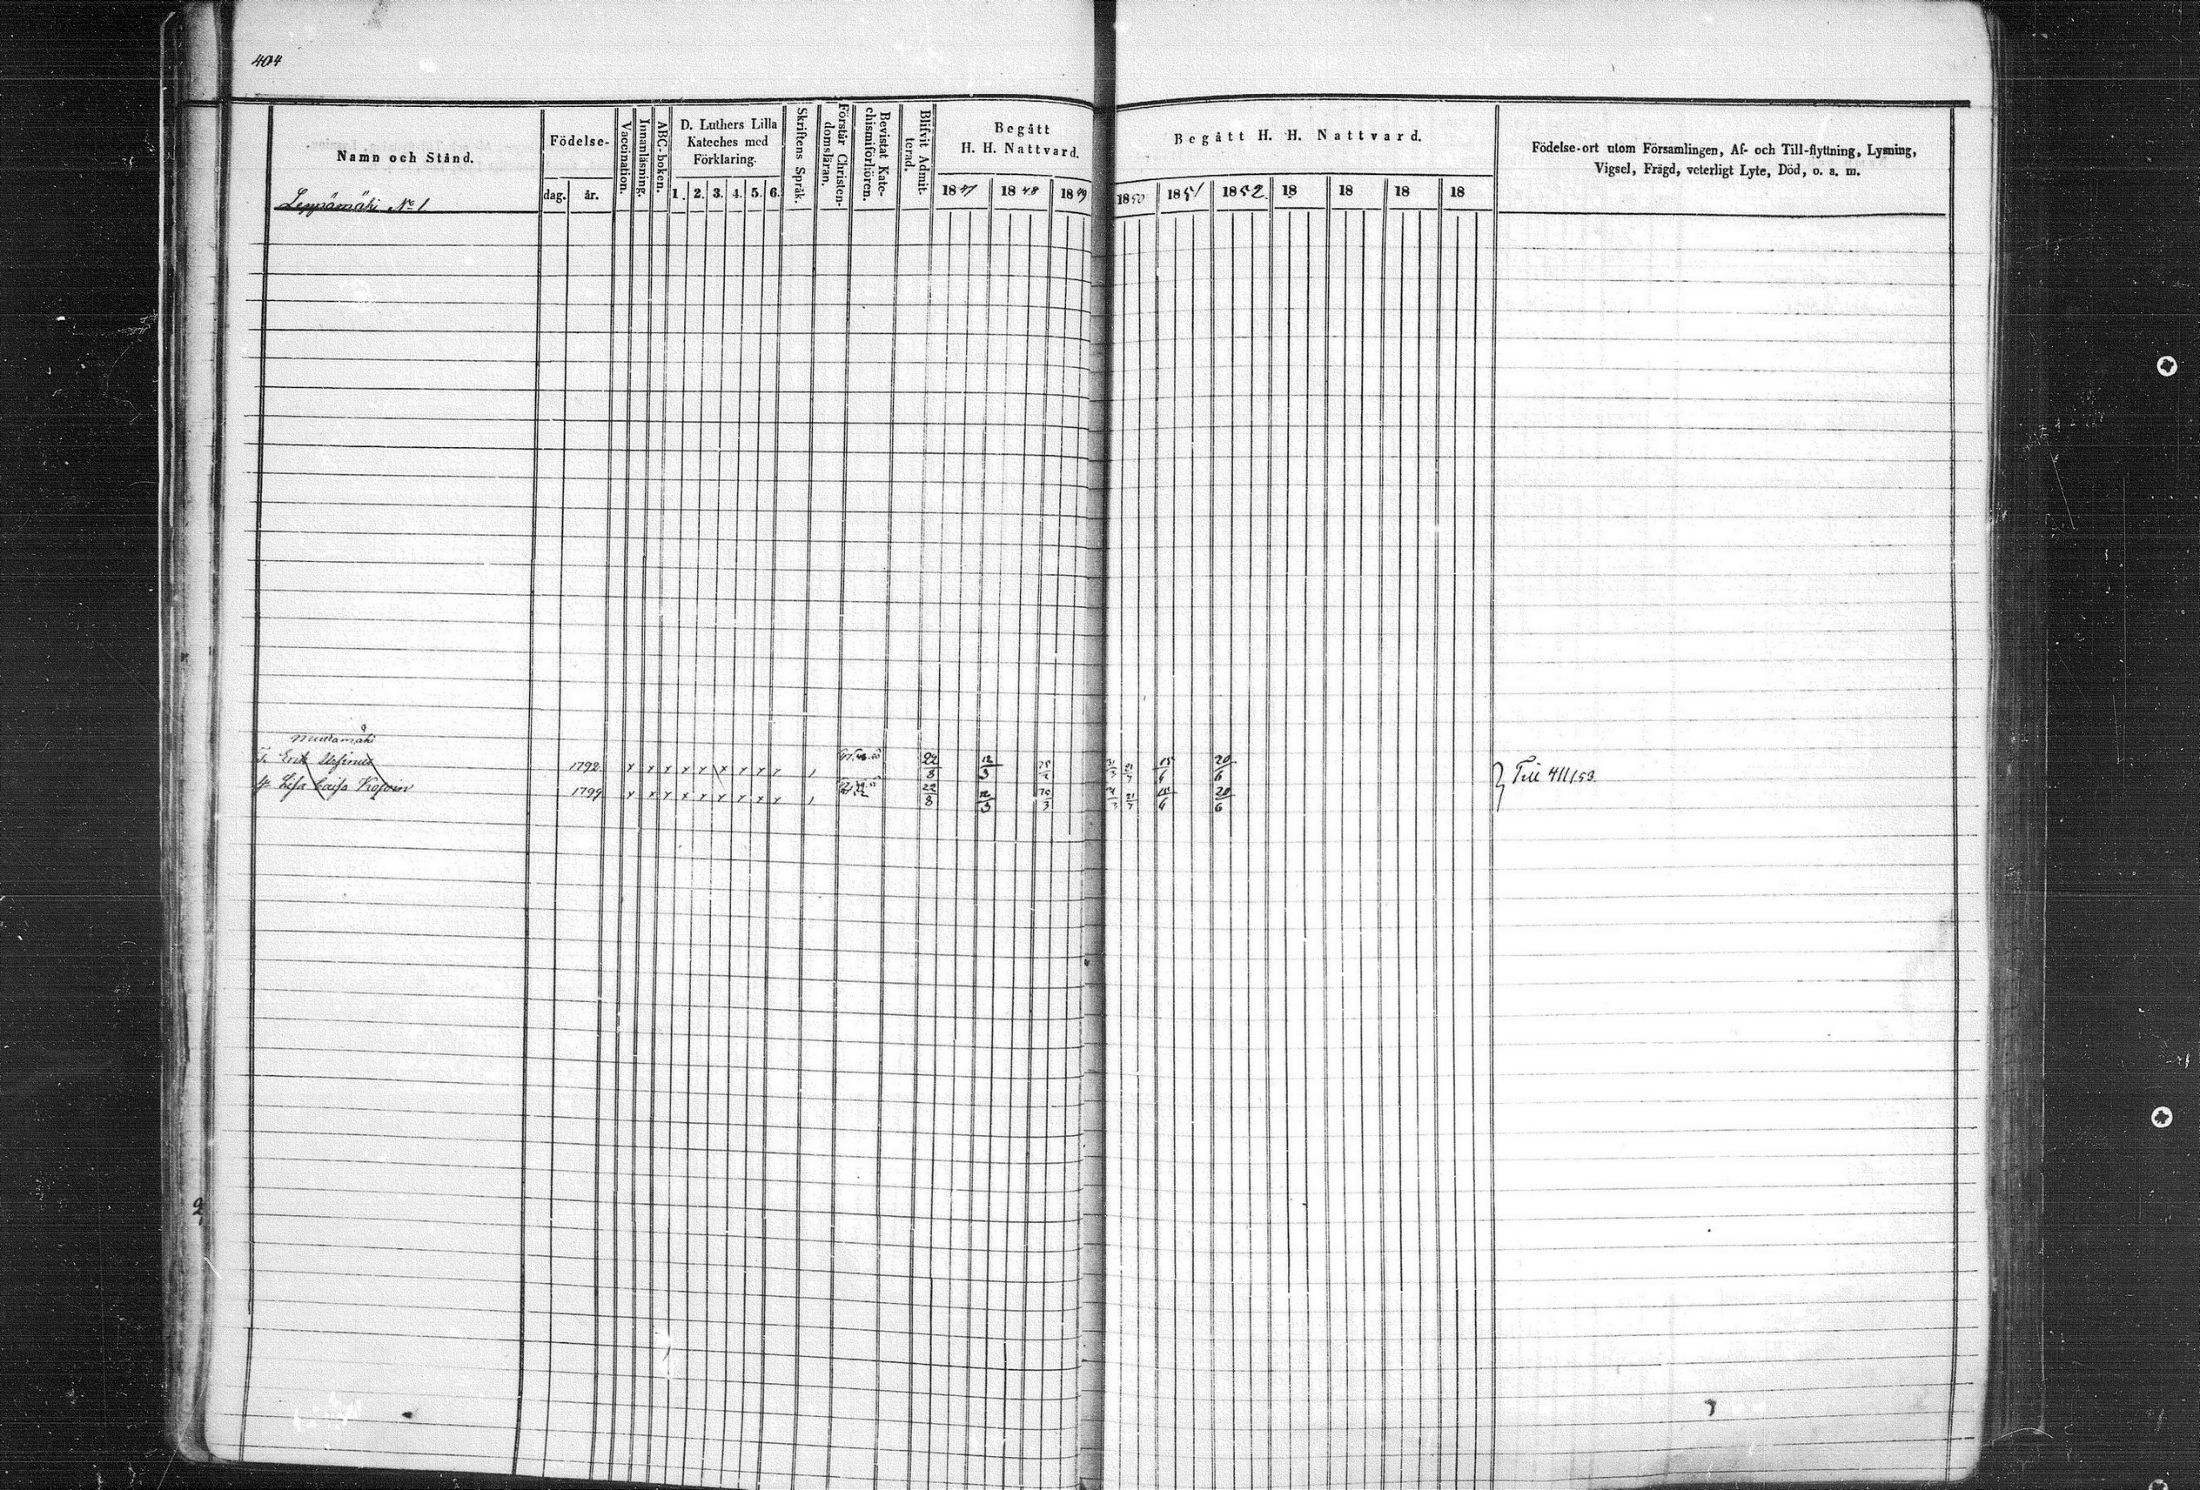 404
Namn och Stånd.
Leppämäki No 1.
Födelse-
dag. år.
Vaccination.
Innanläsning.
ABC-boken.
D. Luthers Lilla
Kateches med
Förklaring.
1. 2. 3. 4. 5. 6.
Skriftens Språk.
Förstår Christen-
domsläran.
Bevistat Kate-
chismiförhören.
Blifvit Admit-
terad.
Begått
H. H. Nattvard.
1847 1848 1849
Begått H. H. Nattvard.
1850 1851 1852 18 18 18 18
Födelse-ort utom Församlingen, Af- och Till-flyttning, Lysning,
Vigsel, Frägd, veterligt Lyte, Död, o. a. m.
Mustamäki
Erik 1792 x x x x x x x x x 22/8 12/3 15/6 20/6 Till 411/53.
Lisa Caisa 1799 x x x x x x x x x 22/8 12/3 15/6 20/6